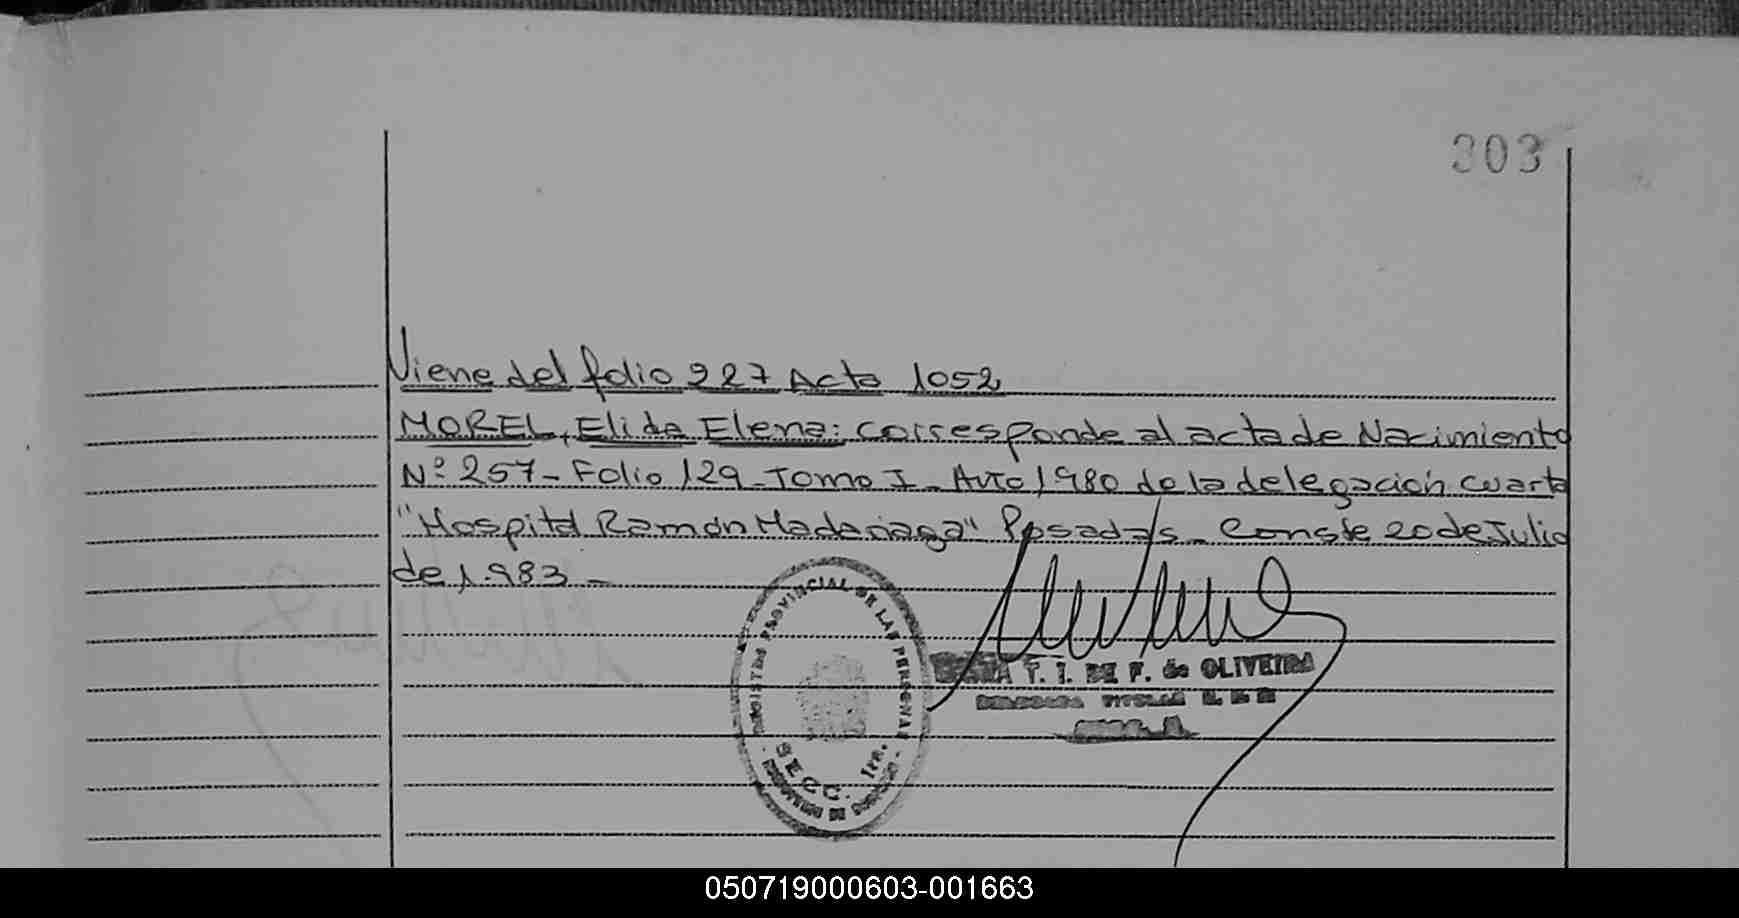 303
Viene del folio 227 Acta 1052
MOREL, Elida Elena: corresponde al acta de Nacimiento
Nº 257 - Folio 129 - Tomo I - Año 1980 de la delegación cuarta
"Hospital Ramón Madariaga" Posadas - Conste 20 de Julio
de 1.983 -
REGISTRO PROVINCIAL DE LAS PERSONAS
SECC. 1ra.
T. I. DE F. de OLIVEIRA
DELEGADA TITULAR
050719000603-001663